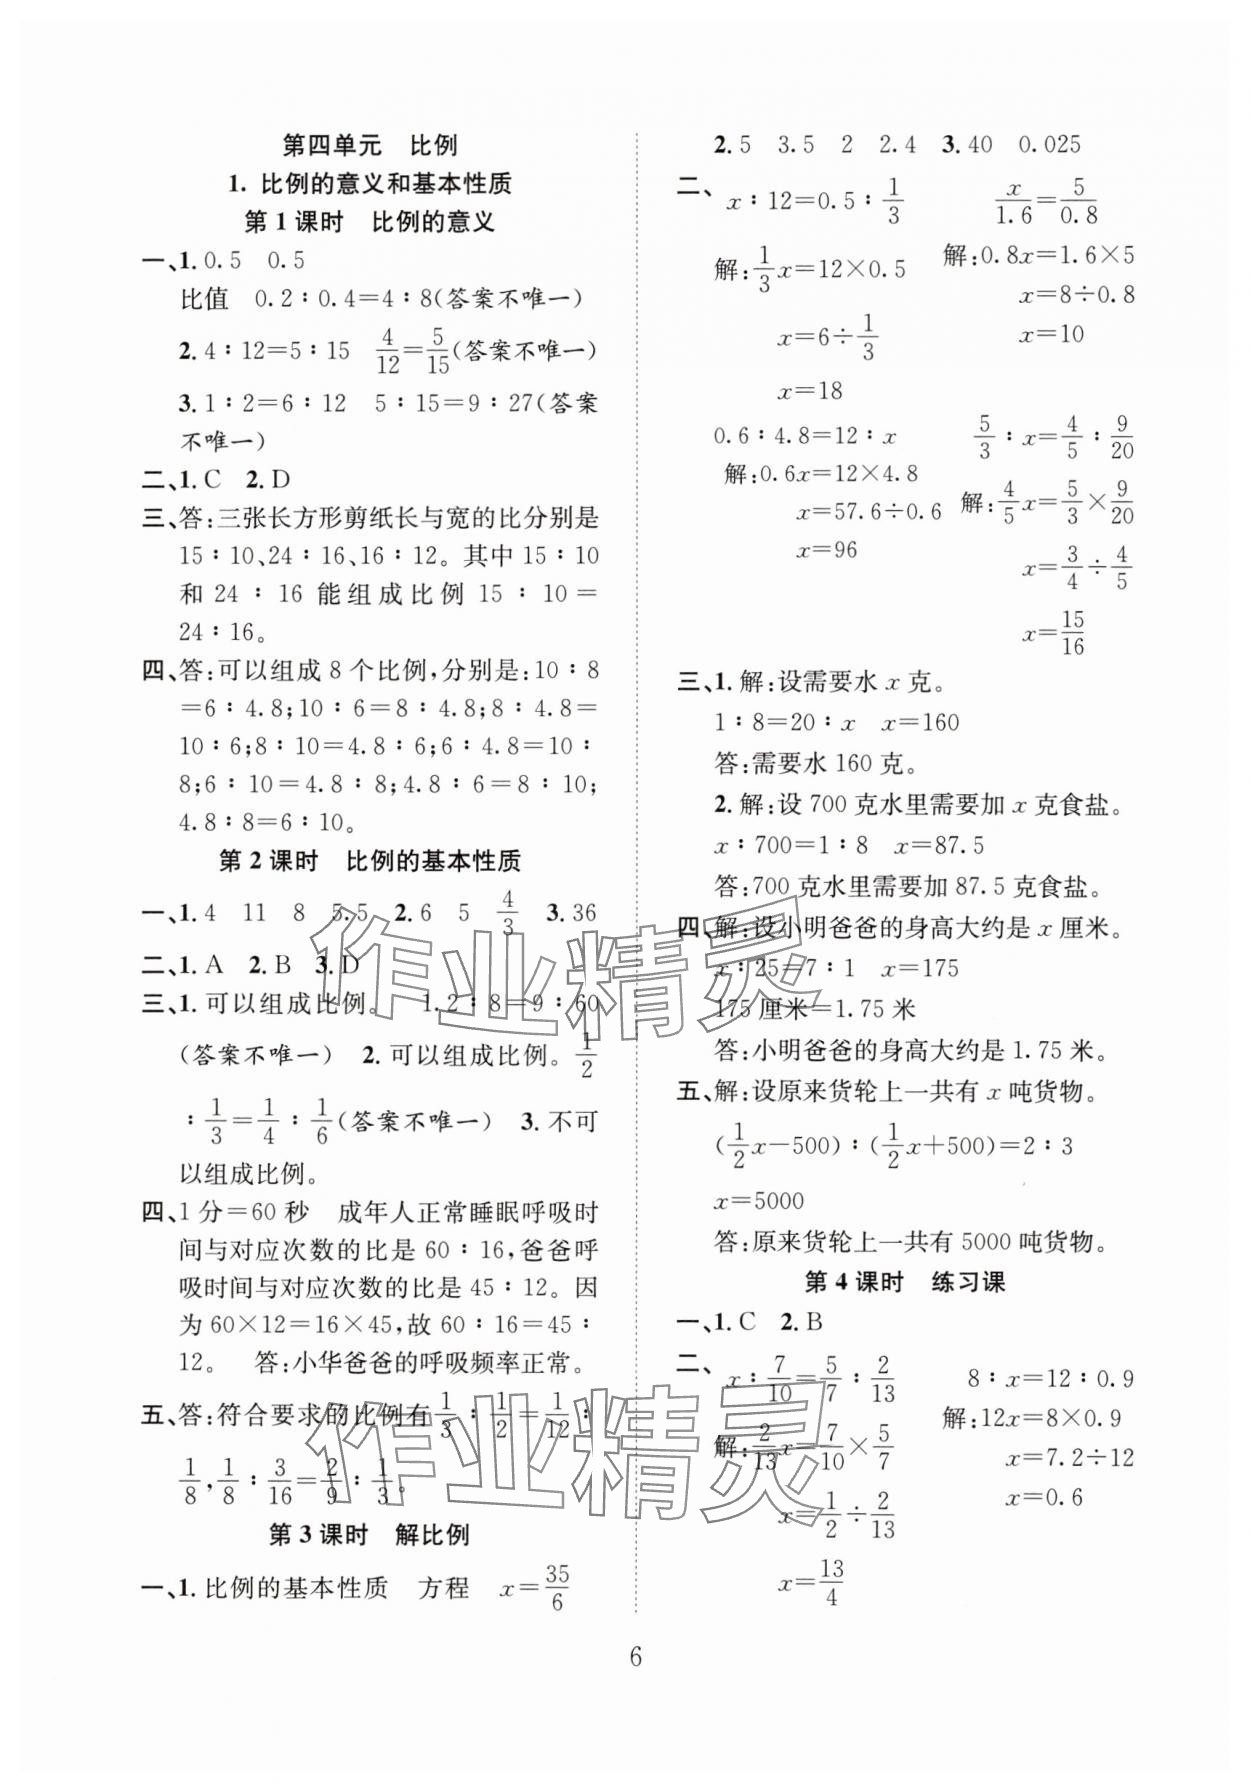 第四单元　比例
1. 比例的意义和基本性质
第1课时　比例的意义
一、1. 0.5　0.5
比值　0.2∶0.4=4∶8(答案不唯一)
2. 4∶12=5∶15　4/12=5/15(答案不唯一)
3. 1∶2=6∶12　5∶15=9∶27(答案
不唯一)
二、1. C　2. D
三、答:三张长方形剪纸长与宽的比分别是
15∶10、24∶16、16∶12。其中 15∶10
和 24∶16 能组成比例 15∶10=
24∶16。
四、答:可以组成 8 个比例,分别是:10∶8
=6∶4.8;10∶6=8∶4.8;8∶4.8=
10∶6;8∶10=4.8∶6;6∶4.8=10∶
8;6∶10=4.8∶8;4.8∶6=8∶10;
4.8∶8=6∶10。
第2课时　比例的基本性质
一、1. 4　11　8　5.5　2. 6　5　4/3　3. 36
二、1. A　2. B　3. D
三、1. 可以组成比例。　1.2∶8=9∶60
(答案不唯一)　2. 可以组成比例。1/2
∶1/3=1/4∶1/6(答案不唯一)　3. 不可
以组成比例。
四、1分=60秒　成年人正常睡眠呼吸时
间与对应次数的比是 60∶16,爸爸呼
吸时间与对应次数的比是 45∶12。因
为 60×12=16×45,故 60∶16=45∶
12。　答:小华爸爸的呼吸频率正常。
五、答:符合要求的比例有 1/3∶1/2=1/12∶
1/8,1/8∶3/16=2/9∶1/3。
第3课时　解比例
一、1. 比例的基本性质　方程　x=35/6
2. 5　3.5　2　2.4　3. 40　0.025
二、x∶12=0.5∶1/3　x/1.6=5/0.8
解:1/3x=12×0.5　解:0.8x=1.6×5
x=8÷0.8
x=6÷1/3　x=10
x=18
0.6∶4.8=12∶x　5/3∶x=4/5∶9/20
解:0.6x=12×4.8　解:4/5x=5/3×9/20
x=57.6÷0.6
x=96　x=3/4÷4/5
x=15/16
三、1. 解:设需要水 x 克。
1∶8=20∶x　x=160
答:需要水 160 克。
2. 解:设 700 克水里需要加 x 克食盐。
x∶700=1∶8　x=87.5
答:700 克水里需要加 87.5 克食盐。
四、解:设小明爸爸的身高大约是 x 厘米。
x∶25=7∶1　x=175
175 厘米=1.75 米
答:小明爸爸的身高大约是 1.75 米。
五、解:设原来货轮上一共有 x 吨货物。
(1/2x-500)∶(1/2x+500)=2∶3
x=5000
答:原来货轮上一共有 5000 吨货物。
第4课时　练习课
一、1. C　2. B
二、x∶7/10=5/7∶2/13　8∶x=12∶0.9
解:2/13x=7/10×5/7　解:12x=8×0.9
x=7.2÷12
x=1/2÷2/13　x=0.6
x=13/4
6
作业精灵
作业精灵